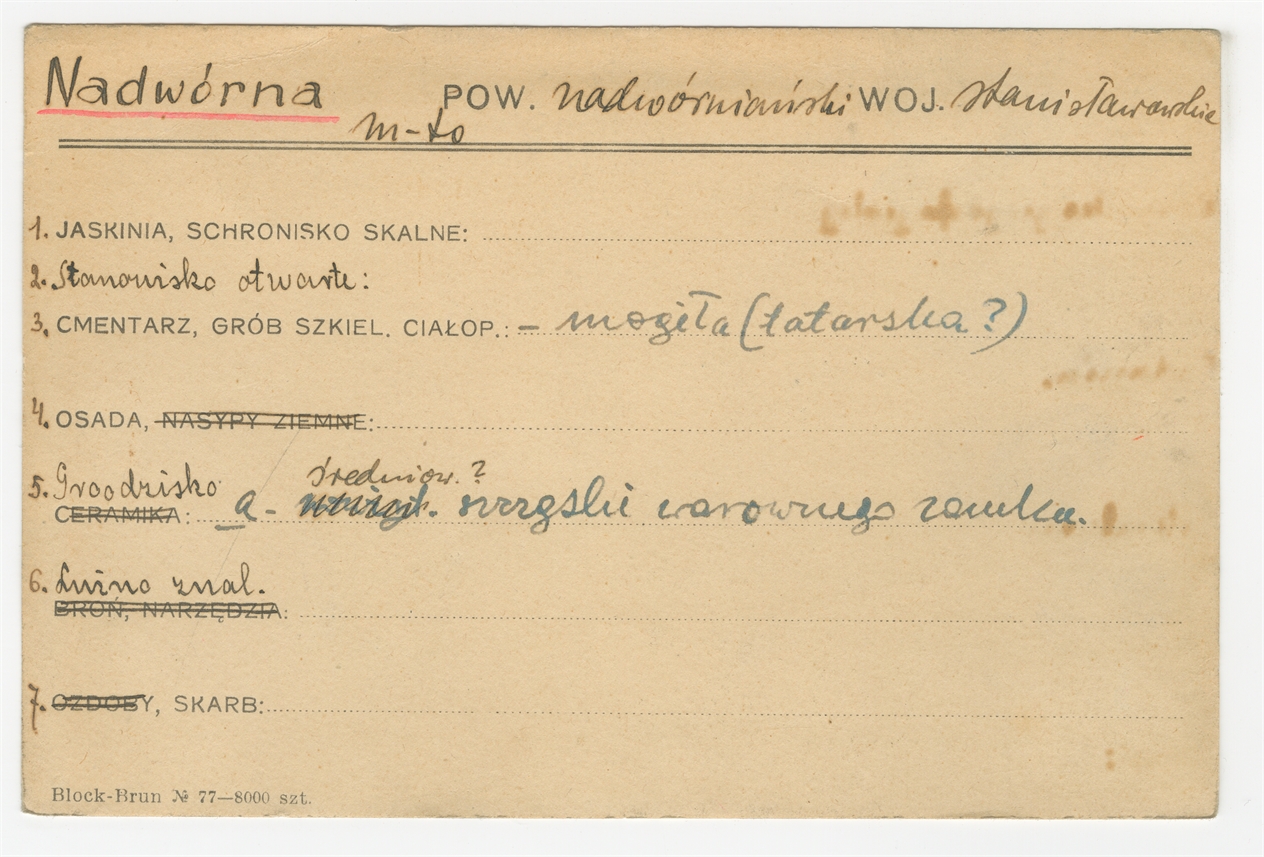 Nadwórna POW. nadwórniański WOJ. stanisławowskie
m-to
1. JASKINIA, SCHRONISKO SKALNE:
2. Stanowisko otwarte:
3. CMENTARZ, GRÓB SZKIEL. CIAŁOP.: – mogiła (tatarska?)
4. OSADA, NASYPY ZIEMNE:
5. Groodzisko średniow. ?
CERAMIKA: a - szczątki warownego zamku.
6. Luźno znal.
BROŃ, NARZĘDZIA:
7. OZDOBY, SKARB:
Block-Brun № 77—8000 szt.